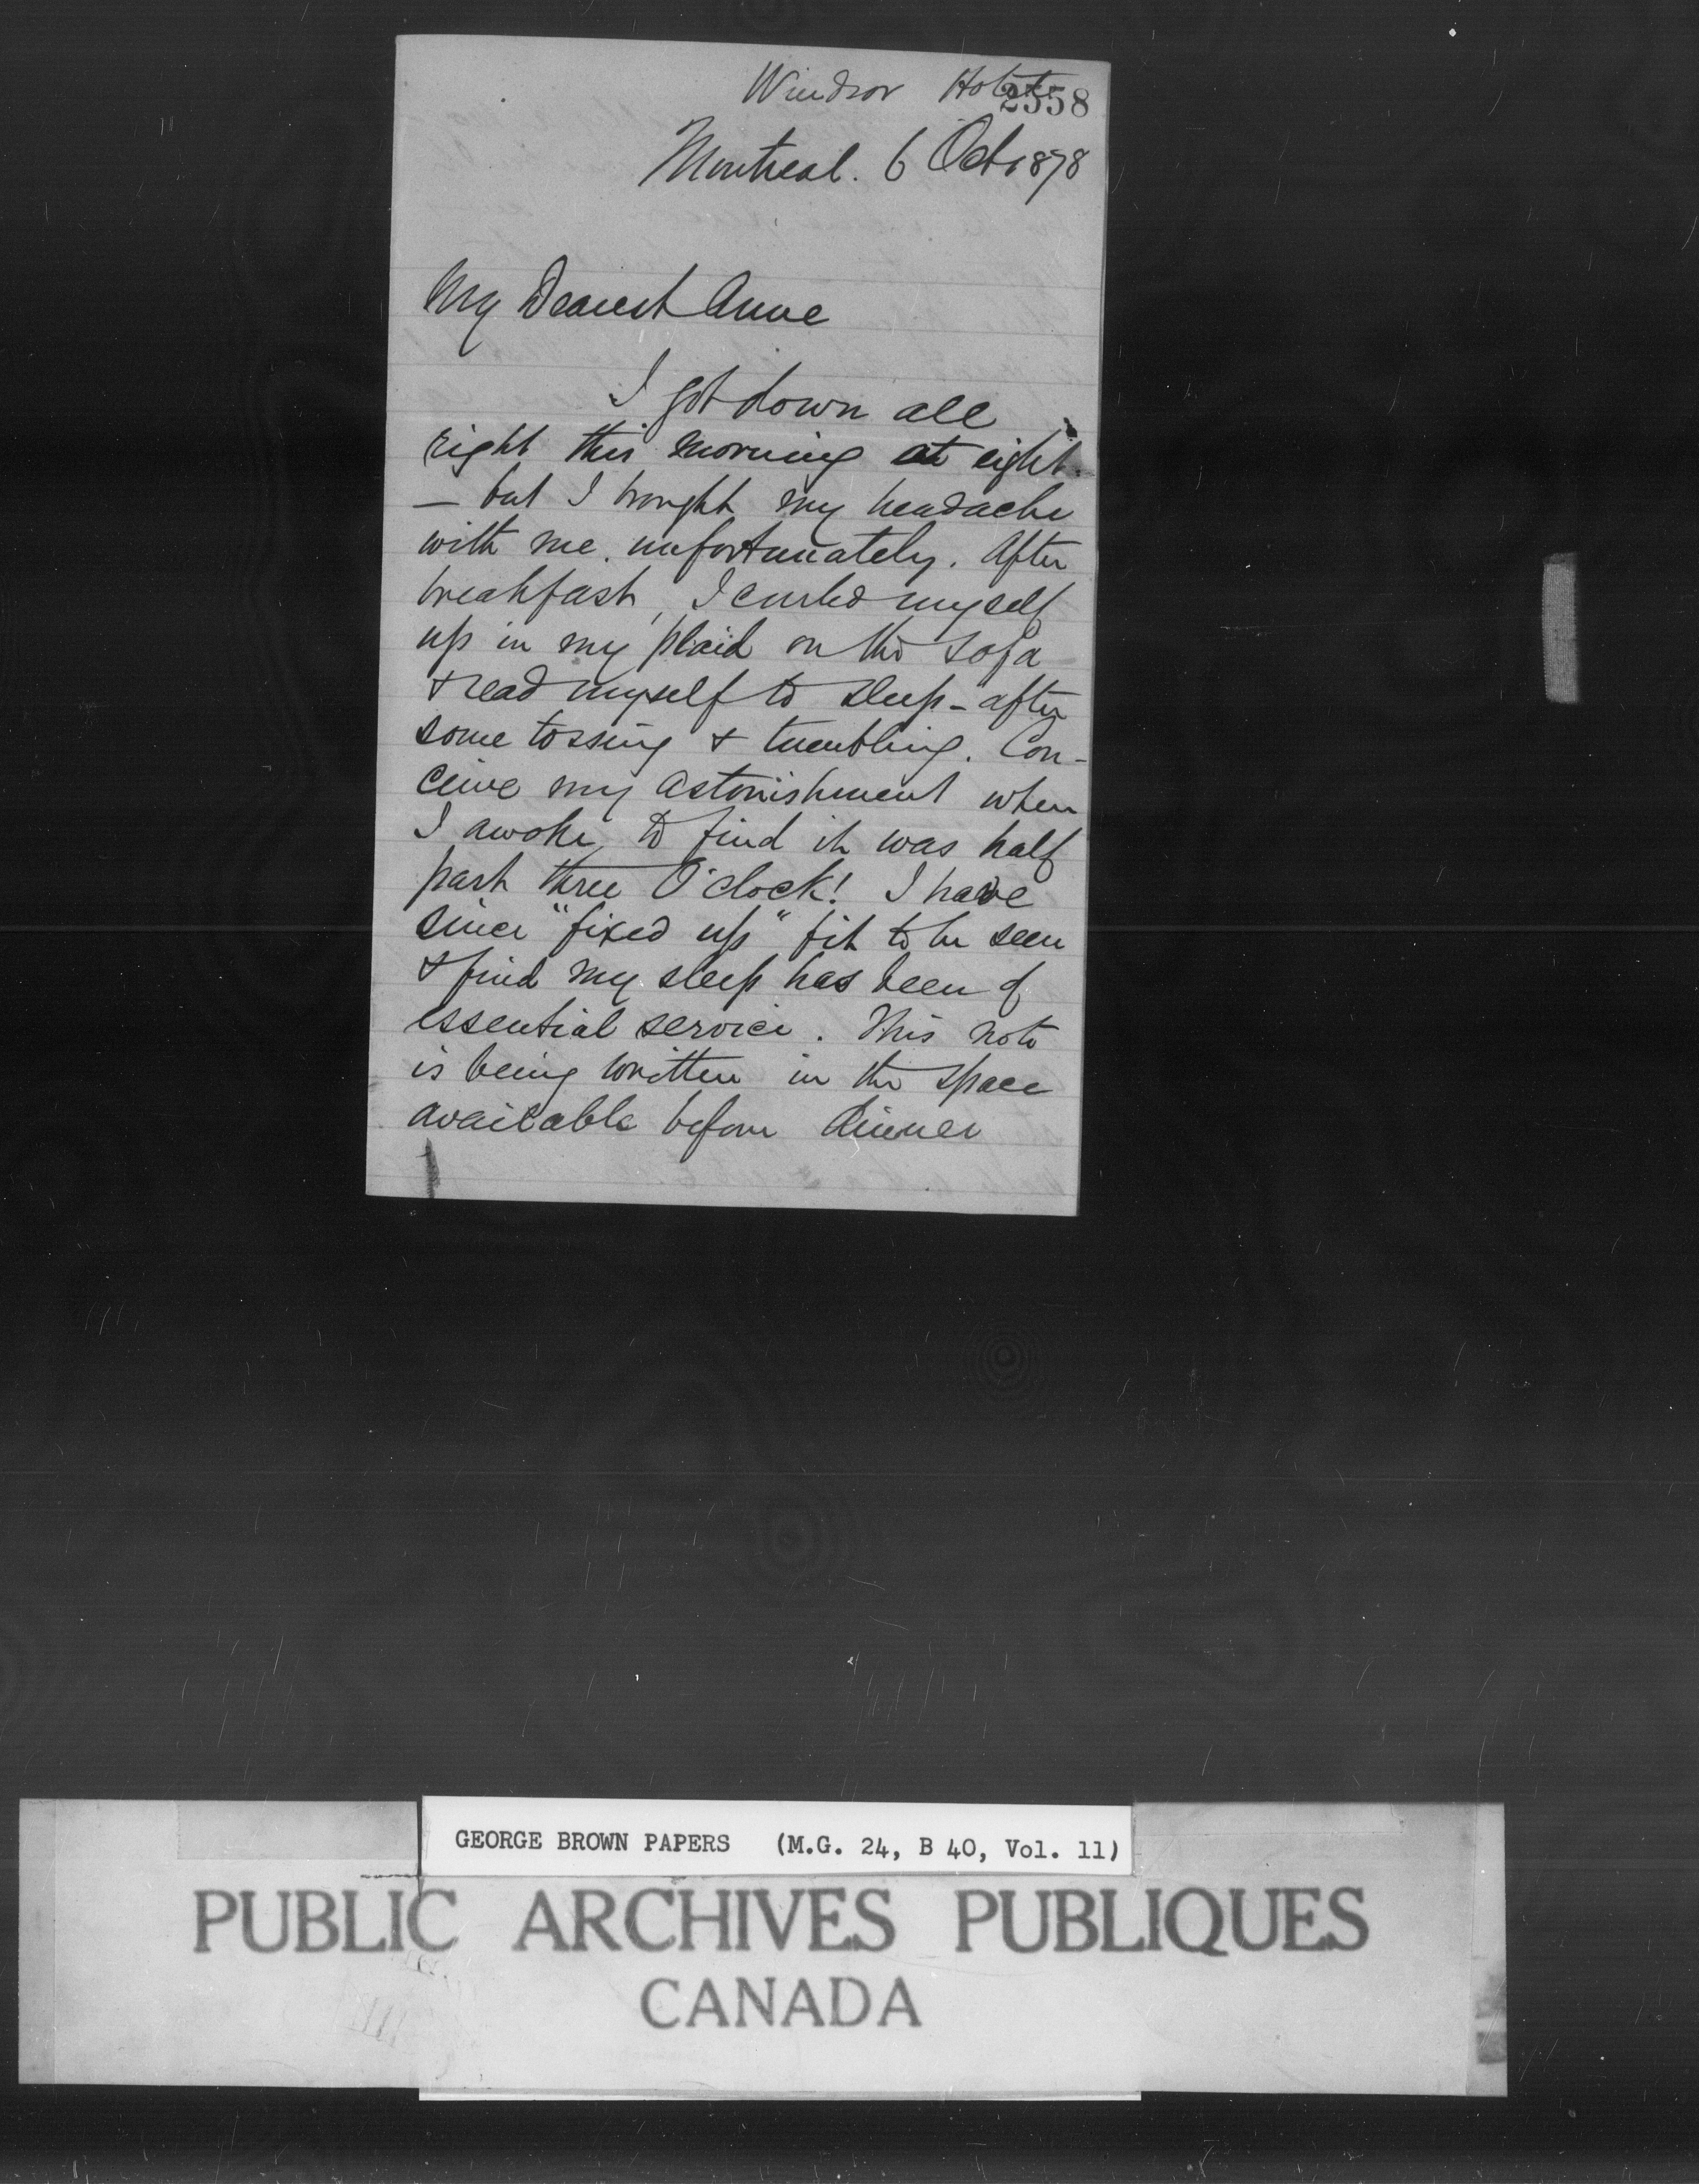 Windsor Hotel
2358
Montreal. 6 Oct 1878
My Dearest Anne
I got down all
right this morning at eight.
– but I brought my headache
with me unfortunately. After
breakfast, I curled myself
up in my plaid on the sofa
& read myself to sleep – after
some tossing & tumbling. Con-
ceive my astonishment when
I awoke to find it was half
past three O'clock! I have
since "fixed up" fit to be seen
& find my sleep has been of
essential service. This note
is being written in the space
available before dinner
GEORGE BROWN PAPERS (M.G. 24, B 40, Vol. 11)
PUBLIC ARCHIVES PUBLIQUES
CANADA